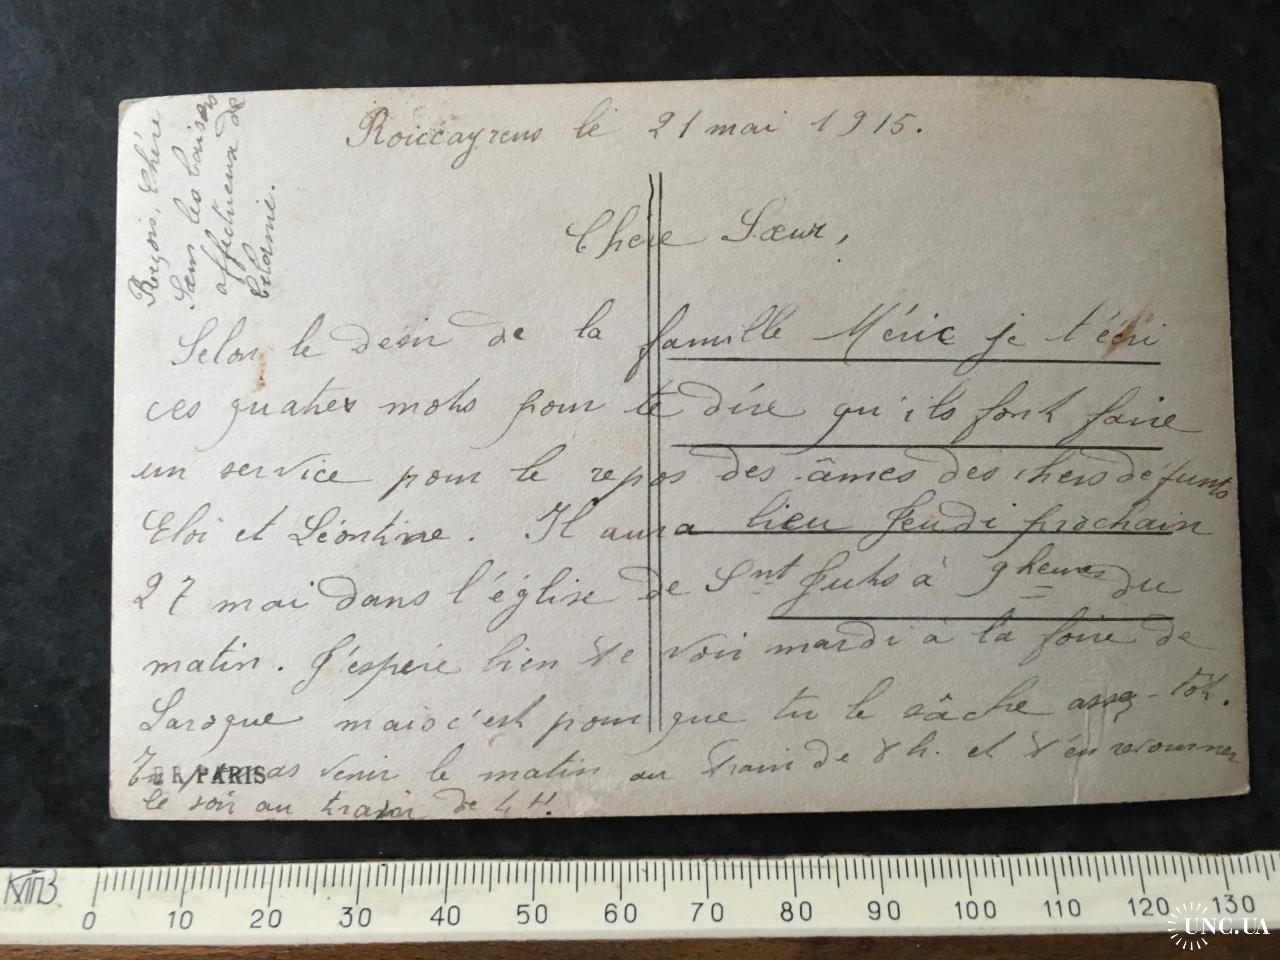 le 21 mai 1915.
Chère Sœur,
Selon le désir de la famille Méric je t'écri
ces quatres mots pour te dire qu'ils font faire
un service pour le repos des âmes des chers défunts
Eloi et Léontine. Il aura lieu Jeudi prochain
27 mai dans l'église de Snt Juts à 9 heures du
matin. J'espère bien te voir mardi à la foire de
Laroque mais c'est pour que tu le sâche assez-tôt.
Tu venir le matin au train de 8 h. et t'en retourner
le soir au train de 4 H
Reçois, Chère
Sœur les baisers
affectueux de
PARIS
0 10 20 30 40 50 60 70 80 90 100 110 120 130
UNC.UA